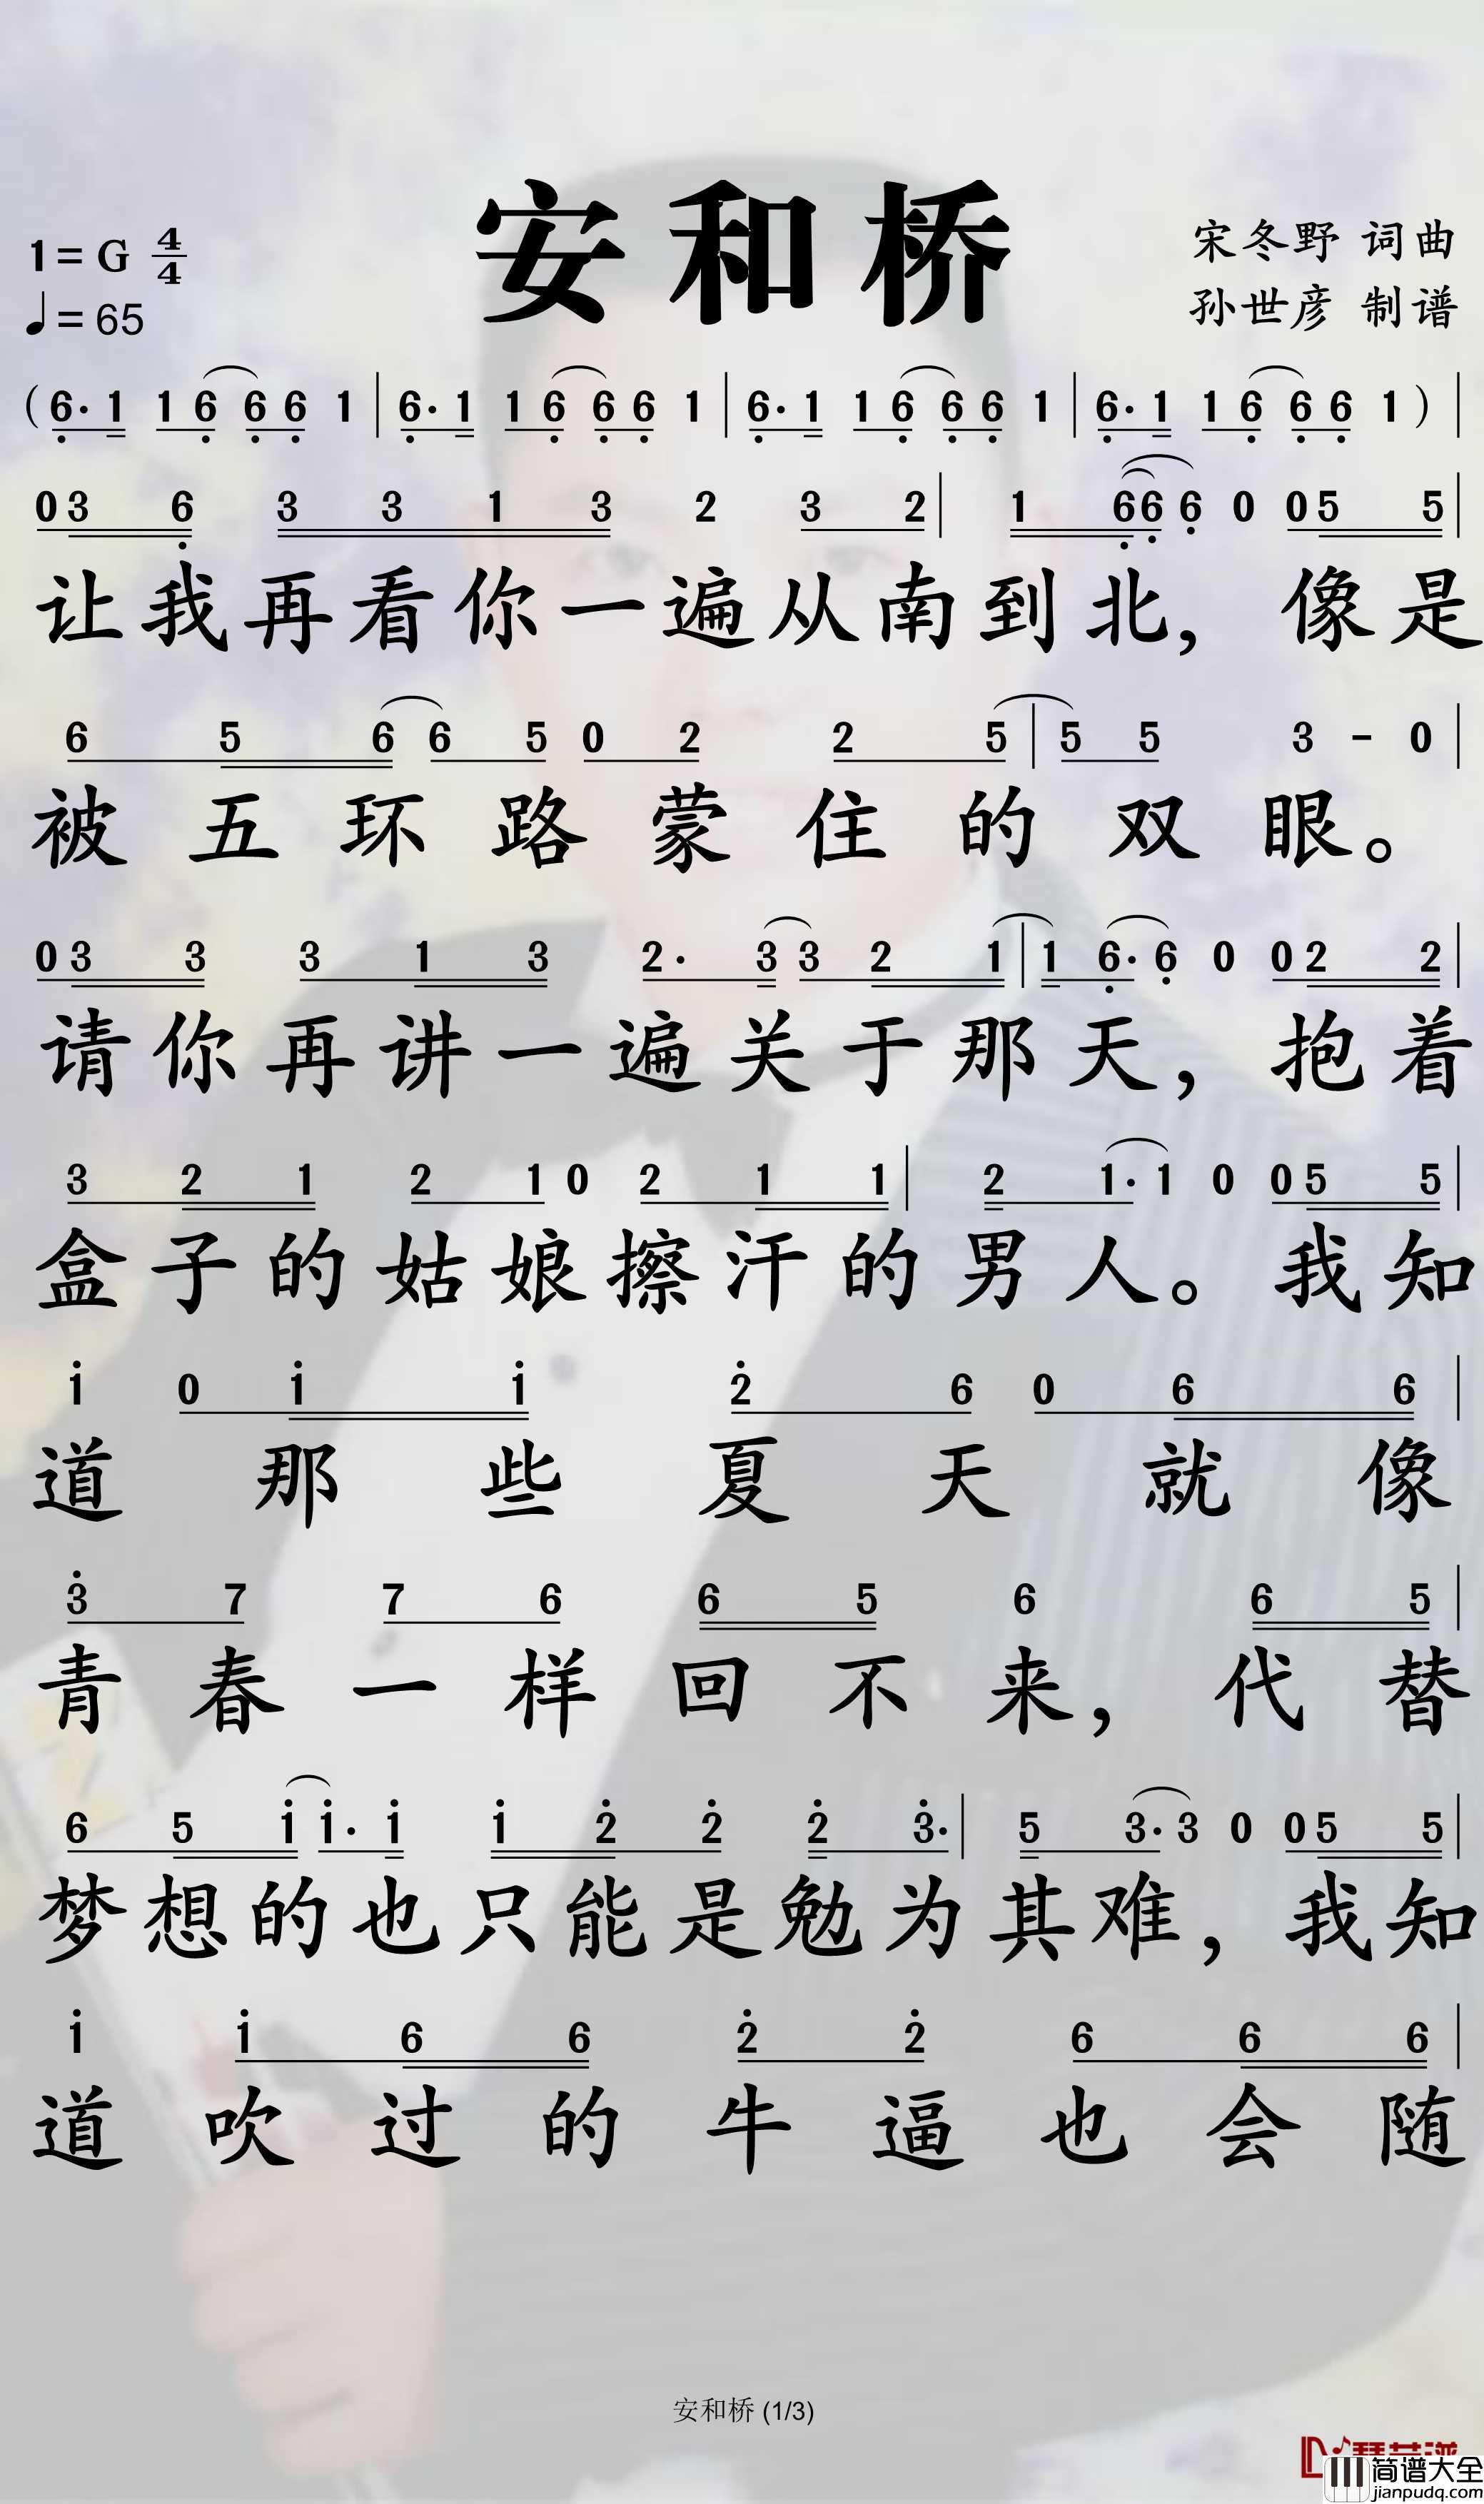 安和桥
1=G 4/4
♩=65
宋冬野 词曲
孙世彦 制谱
(6̣· 1 1 6̣ 6̣ 6̣ 1 | 6̣· 1 1 6̣ 6̣ 6̣ 1 | 6̣· 1 1 6̣ 6̣ 6̣ 1 | 6̣· 1 1 6̣ 6̣ 6̣ 1 ) |
0 3 6̣ 3 3 1 3 2 3 2 | 1 6̣ 6̣ 6̣ 0 0 5 5 |
让我再看你一遍从南到北, 像是
6 5 6 6 5 0 2 2 5 | 5 5 3 - 0 |
被五环路蒙住的双眼。
0 3 3 3 1 3 2· 3 3 2 1 | 1 6̣· 6̣ 0 0 2 2 |
请你再讲一遍关于那天, 抱着
3 2 1 2 1 0 2 1 1 | 2 1· 1 0 0 5 5 |
盒子的姑娘擦汗的男人。我知
1̇ 0 1̇ 1̇ 2̇ 6 0 6 6 |
道那些夏天就像
3̇ 7 7 6 6 5 6 6 5 |
青春一样回不来, 代替
6 5 1̇ 1̇· 1̇ 1̇ 2̇ 2̇ 2̇ 3̇· | 5 3· 3 0 0 5 5 |
梦想的也只能是勉为其难, 我知
1̇ 1̇ 6 6 2̇ 2̇ 6 6 6 |
道吹过的牛逼也会随
安和桥 (1/3)
简谱大全
jianpudq.com